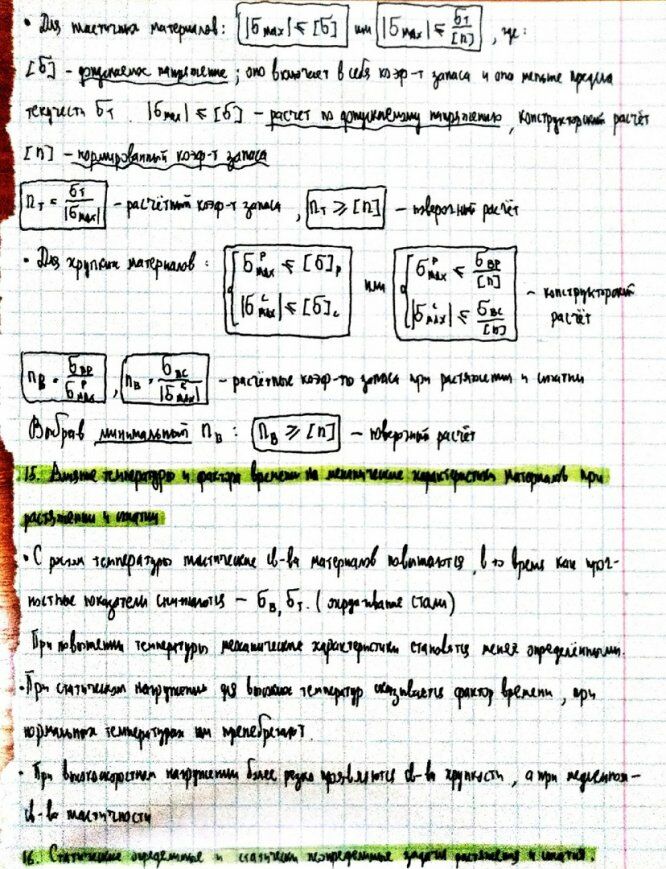 • Для пластичных материалов: |σmax| ≤ [σ] или |σmax| ≤ σт/[n], где:
[σ] - допускаемое напряжение; оно включает в себя коэф-т запаса и оно меньше предела
текучести σт. |σmax| ≤ [σ] – расчёт по допускаемому напряжению, конструкторский расчёт
[n] – нормированный коэф-т запаса
nт = σт/|σmax| – расчётный коэф-т запаса, nт ≥ [n] – поверочный расчёт
• Для хрупких материалов: { σᴾmax ≤ [σ]р |σᶜmax| ≤ [σ]с или { σᴾmax ≤ σвр/[n] |σᶜmax| ≤ σвс/[n] – конструкторский
расчёт
nв = σвр/σᴾmax, nв = σвс/|σᶜmax| – расчётные коэф-ты запаса при растяжении и сжатии
Выбрав минимальный nв: nв ≥ [n] – поверочный расчёт
15. Влияние температуры и фактора времени на механические характеристики материалов при
растяжении и сжатии
• С ростом температуры пластические св-ва материалов повышаются, в то время как проч-
ностные показатели снижаются – σв, σт. (стали)
При повышении температуры механические характеристики становятся менее определёнными.
• При статическом нагружении для высоких температур сказывается фактор времени, при
нормальных температурах им пренебрегают.
• При высокоскоростном нагружении более резко проявляются св-ва хрупкости, а при медленном –
св-ва пластичности
16. Статически определимые и статически неопределимые задачи растяжения и сжатия.